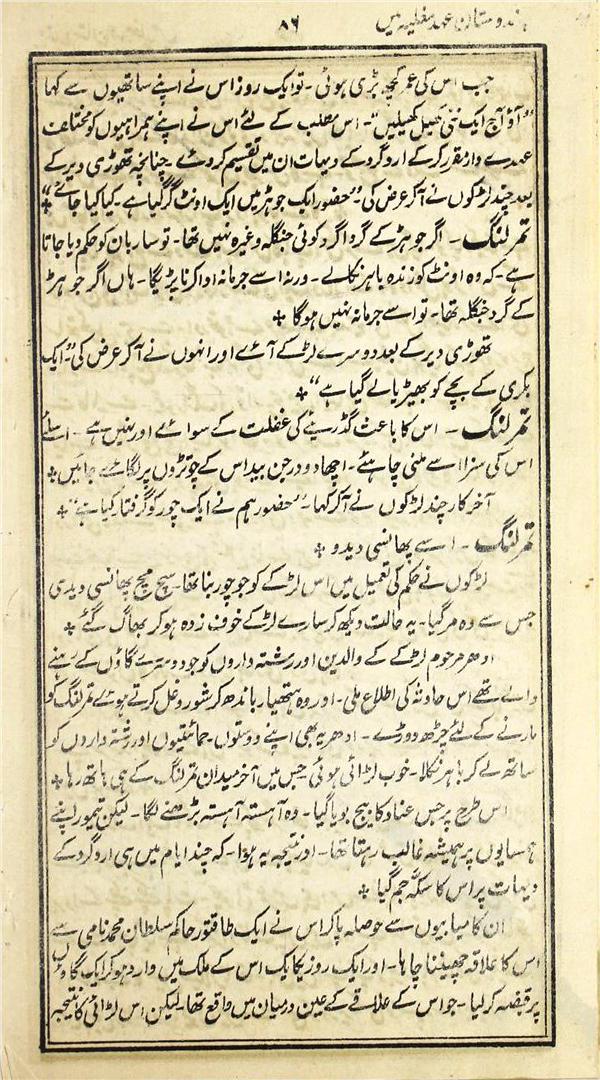 ہندوستان عہد مغلیہ میں
۸۶
جب اس کی عمر کچھ بڑی ہوئی۔ تو ایک روز اس نے اپنے ساتھیوں سے کہا
"آؤ آج ایک نئی کھیل کھیلیں"۔ اس مطلب کے لئے اس نے اپنے ہمراہیوں کو مختلف
عہدے وار مقرر کرکے اردگرد کے دیہات ان میں تقسیم کردئے۔ چنانچہ تھوڑی دیر کے
بعد چند لڑکوں نے آکر عرض کی "حضور ایک جوہڑ میں ایک اونٹ گر گیا ہے۔ کیا کیا جائے"؟
تمر لنگ۔ اگر جوہڑ کے گردا گرد کوئی جنگلہ وغیرہ نہیں تھا۔ تو ساربان کو حکم دیا جاتا
ہے۔ کہ وہ اونٹ کو زندہ باہر نکالے۔ ورنہ اسے جرمانہ ادا کرنا پڑیگا۔ ہاں اگر جوہڑ
کے گرد جنگلہ تھا۔ تو اسے جرمانہ نہیں ہوگا ٭
تھوڑی دیر کے بعد دوسرے لڑکے آئے اور انہوں نے آکر عرض کی "ایک
بکری کے بچے کو بھیڑیا لے گیا ہے" ٭
تمر لنگ۔ اس کا باعث گڈریئے کی غفلت کے سوائے اور نہیں ہے۔ اس لئے
اس کی سزا اسے ملنی چاہئے۔ اچھا دو درجن بید اس کے چوتڑوں پر لگائے جائیں ٭
آخر کار چند لڑکوں نے آکر کہا۔ "حضور ہم نے ایک چور کو گرفتار کیا ہے" ٭
تمر لنگ۔ اسے پھانسی دیدو ٭
لڑکوں نے حکم کی تعمیل میں اس لڑکے کو جو چور بنا تھا۔ سچ مچ پھانسی دیدی
جس سے وہ مر گیا۔ یہ حالت دیکھ کر سارے لڑکے خوف زدہ ہوکر بھاگ گئے ٭
ادھر مرحوم لڑکے کے والدین اور رشتہ داروں کو جو دوسرے گاؤں کے رہنے
والے تھے اس حادثہ کی اطلاع ملی۔ اور وہ ہتھیار باندھ کر شور و غل کرتے ہوئے تمر لنگ کو
مارنے کے لئے چڑھ دوڑے۔ ادھر یہ بھی اپنے دوستوں۔ حمائتیوں اور رشتہ داروں کو
ساتھ لے کر باہر نکلا۔ خوب لڑائی ہوئی جس میں آخر میدان تمر لنگ کے ہی ہاتھ رہا ٭
اس طرح پر جس عناد کا بیج بویا گیا۔ وہ آہستہ آہستہ بڑھنے لگا۔ لیکن تیمور اپنے
ہمسایوں پر ہمیشہ غالب رہتا تھا۔ اور نتیجہ یہ ہوا۔ کہ چند ایام میں ہی اردگرد کے
دیہات پر اس کا سکہ جم گیا ٭
ان کامیابیوں سے حوصلہ پاکر اس نے ایک طاقتور حاکم سلطان محمد نامی سے
اس کا علاقہ چھیننا چاہا۔ اور ایک روز یکایک اس کے ملک میں وارد ہوکر ایک گاؤں
پر قبضہ کرلیا۔ جو اس کے علاقے کے عین درمیان میں واقع تھا۔ لیکن اس لڑائی کا نتیجہ